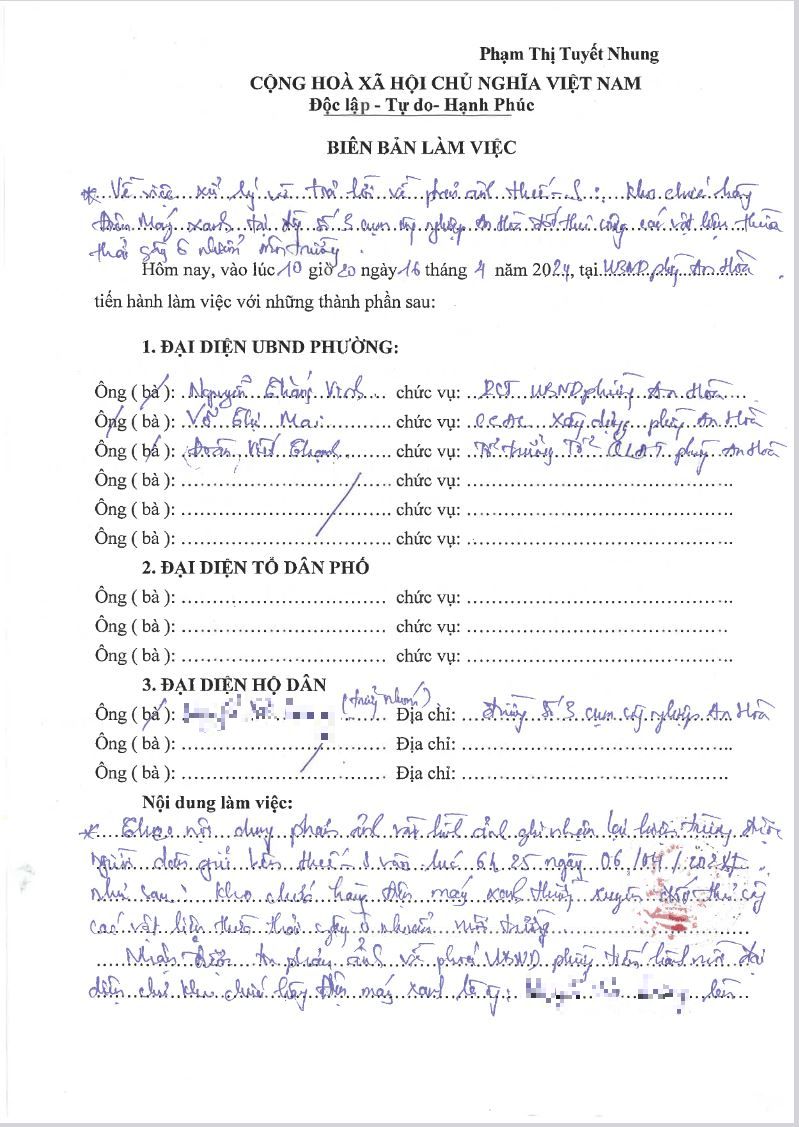 Phạm Thị Tuyết Nhung
CỘNG HOÀ XÃ HỘI CHỦ NGHĨA VIỆT NAM
Độc lập - Tự do- Hạnh Phúc
BIÊN BẢN LÀM VIỆC
* Về việc xử lý và trả lời về phản ánh : kho chứa hàng
Điện Máy xanh tại số 3 cụm nghiệp An Hoà đốt thủ công các vật liệu thừa
thải gây ô nhiễm môi trường.
Hôm nay, vào lúc 10 giờ 20 ngày 16 tháng 4 năm 2024, tại UBND phường An Hoà
tiến hành làm việc với những thành phần sau:
1. ĐẠI DIỆN UBND PHƯỜNG:
Ông ( bà ): Nguyễn Vinh chức vụ: PCT UBND phường An Hoà
Ông ( bà ): Võ Thị Mai chức vụ: xây dựng phường An Hoà
Ông ( bà ): Đoàn Viết chức vụ: Tổ trưởng Tổ QLĐT phường An Hoà
Ông ( bà ): chức vụ:
Ông ( bà ): chức vụ:
Ông ( bà ): chức vụ:
2. ĐẠI DIỆN TỔ DÂN PHỐ
Ông ( bà ): chức vụ:
Ông ( bà ): chức vụ:
Ông ( bà ): chức vụ:
3. ĐẠI DIỆN HỘ DÂN
Ông ( bà ): Địa chỉ: đường số 3 cụm công nghiệp An Hoà
Ông ( bà ): Địa chỉ:
Ông ( bà ): Địa chỉ:
Nội dung làm việc:
* Theo nội dung phản ánh và hình ảnh ghi nhận lại hiện trường được
người dân gửi lên vào lúc 6h 25 ngày 06/04/2024
như sau: kho chứa hàng điện máy xanh thường xuyên đốt thủ công
các vật liệu thừa thải gây ô nhiễm môi trường
Nhận được phản ánh UBND phường tiến hành mời đại
diện chủ kho chứa hàng điện máy xanh là ông: lên